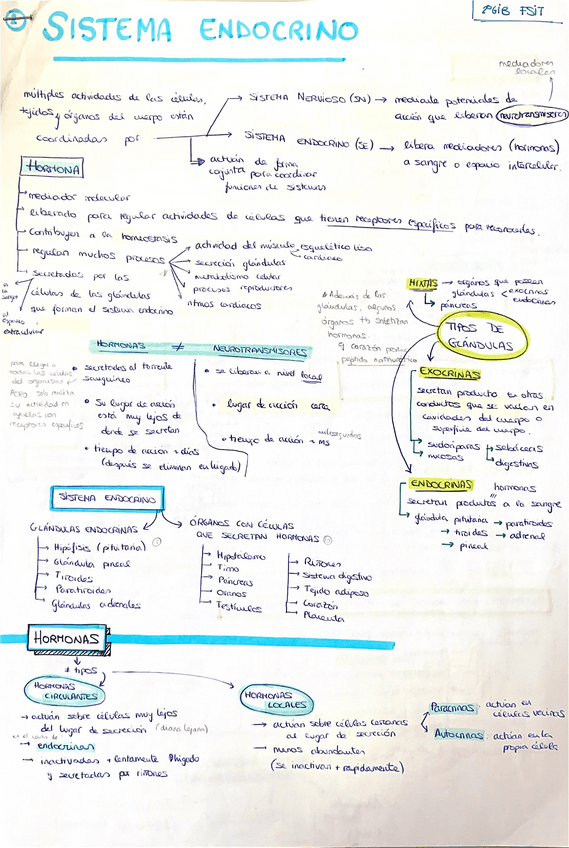 SISTEMA ENDOCRINO
FSIT
mediadores
locales
múltiples actividades de las células,
tejidos y órganos del cuerpo están
coordinadas por
→ SISTEMA NERVIOSO (SN) → mediante potenciales de
acción que liberan neurotransmisores
→ SISTEMA ENDOCRINO (SE) → libera mediadores (hormonas)
a sangre o espacio intercelular.
→ actúan de forma
conjunta para coordinar
funciones de sistemas
HORMONA
→ mediador molecular
→ liberado para regular actividades de células que tienen receptores específicos para reconocerlas.
→ contribuyen a la homeostasis
→ regulan muchos procesos
→ actividad del músculo esquelético liso
cardiaco
→ secreción glándulas
→ metabolismo celular
→ procesos reproductores
→ ritmos cardiacos
→ secretadas por las
células de las glándulas
que forman el sistema endocrino
a la
sangre
al
espacio
extracelular
TIPOS DE
GLÁNDULAS
MIXTAS → órganos que poseen
glándulas exocrinas
endocrinas
→ páncreas
* Además de las
glándulas, algunos
órganos tb sintetizan
hormonas.
ej corazón
EXOCRINAS
secretan producto en otros
conductos que se vacían en
cavidades del cuerpo o
superficie del cuerpo.
→ sudoríparas → sebáceas
→ mucosas → digestivas
ENDOCRINAS hormonas
secretan productos a la sangre
→ glándula pituitaria → paratiroides
→ tiroides → adrenal
→ pineal
HORMONAS ≠ NEUROTRANSMISORES
• secretadas al torrente
sanguíneo
• Su lugar de acción
está muy lejos de
donde se secretan
• tiempo de acción + días
(después se eliminan en hígado)
• se liberan a nivel local
• lugar de acción cerca
• tiempo de acción + ms
milisegundos
SISTEMA ENDOCRINO
GLÁNDULAS ENDOCRINAS
→ Hipófisis (pituitaria)
→ Glándula pineal
→ Tiroides
→ Paratiroides
→ Glándulas adrenales
ÓRGANOS CON CÉLULAS
QUE SECRETAN HORMONAS
→ Hipotálamo
→ Timo
→ Páncreas
→ Ovarios
→ Testículos
→ Riñones
→ Sistema digestivo
→ Tejido adiposo
→ Corazón
→ Placenta
HORMONAS
tipos
HORMONAS
CIRCULANTES
→ actúan sobre células muy lejos
del lugar de secreción (diana lejana)
→ endocrinas
→ inactivadas + lentamente hígado
y secretadas por riñones
HORMONAS
LOCALES
→ actúan sobre células cercanas
al lugar de secreción
→ menos abundantes
(se inactivan + rápidamente)
Paracrinas: actúan en
células vecinas
Autocrinas: actúan en la
propia célula